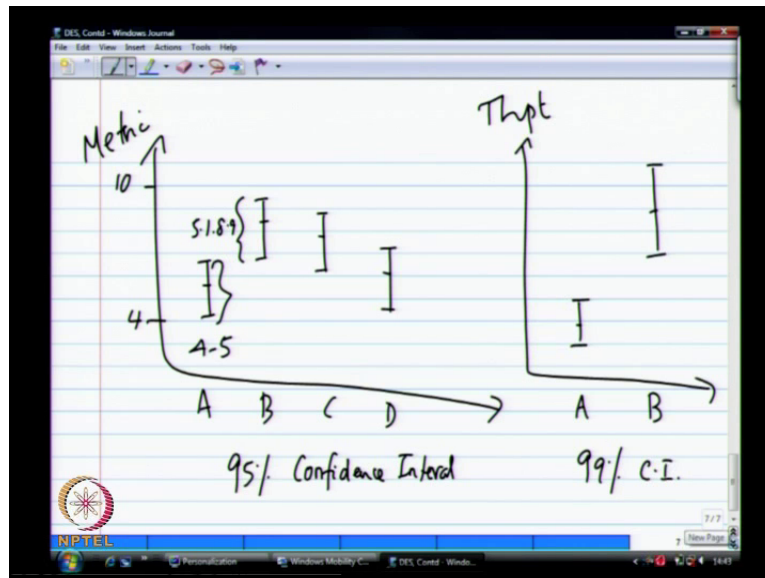 DES, Contd - Windows Journal
File Edit View Insert Actions Tools Help
Metric
10
4
5.1.8.9
4-5
A B C D
95% Confidence Interal
Thpt
A B
99% C.I.
7/7
7 New Page
NPTEL
Personalization
Windows Mobility C...
DES, Contd - Windo...
14:43